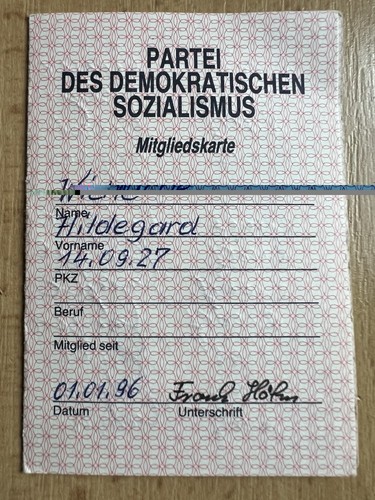 PARTEI
DES DEMOKRATISCHEN
SOZIALISMUS
Mitgliedskarte
Name
Hildegard
Vorname
14.09.27
PKZ
Beruf
Mitglied seit
01.01.96 Frank
Datum Unterschrift